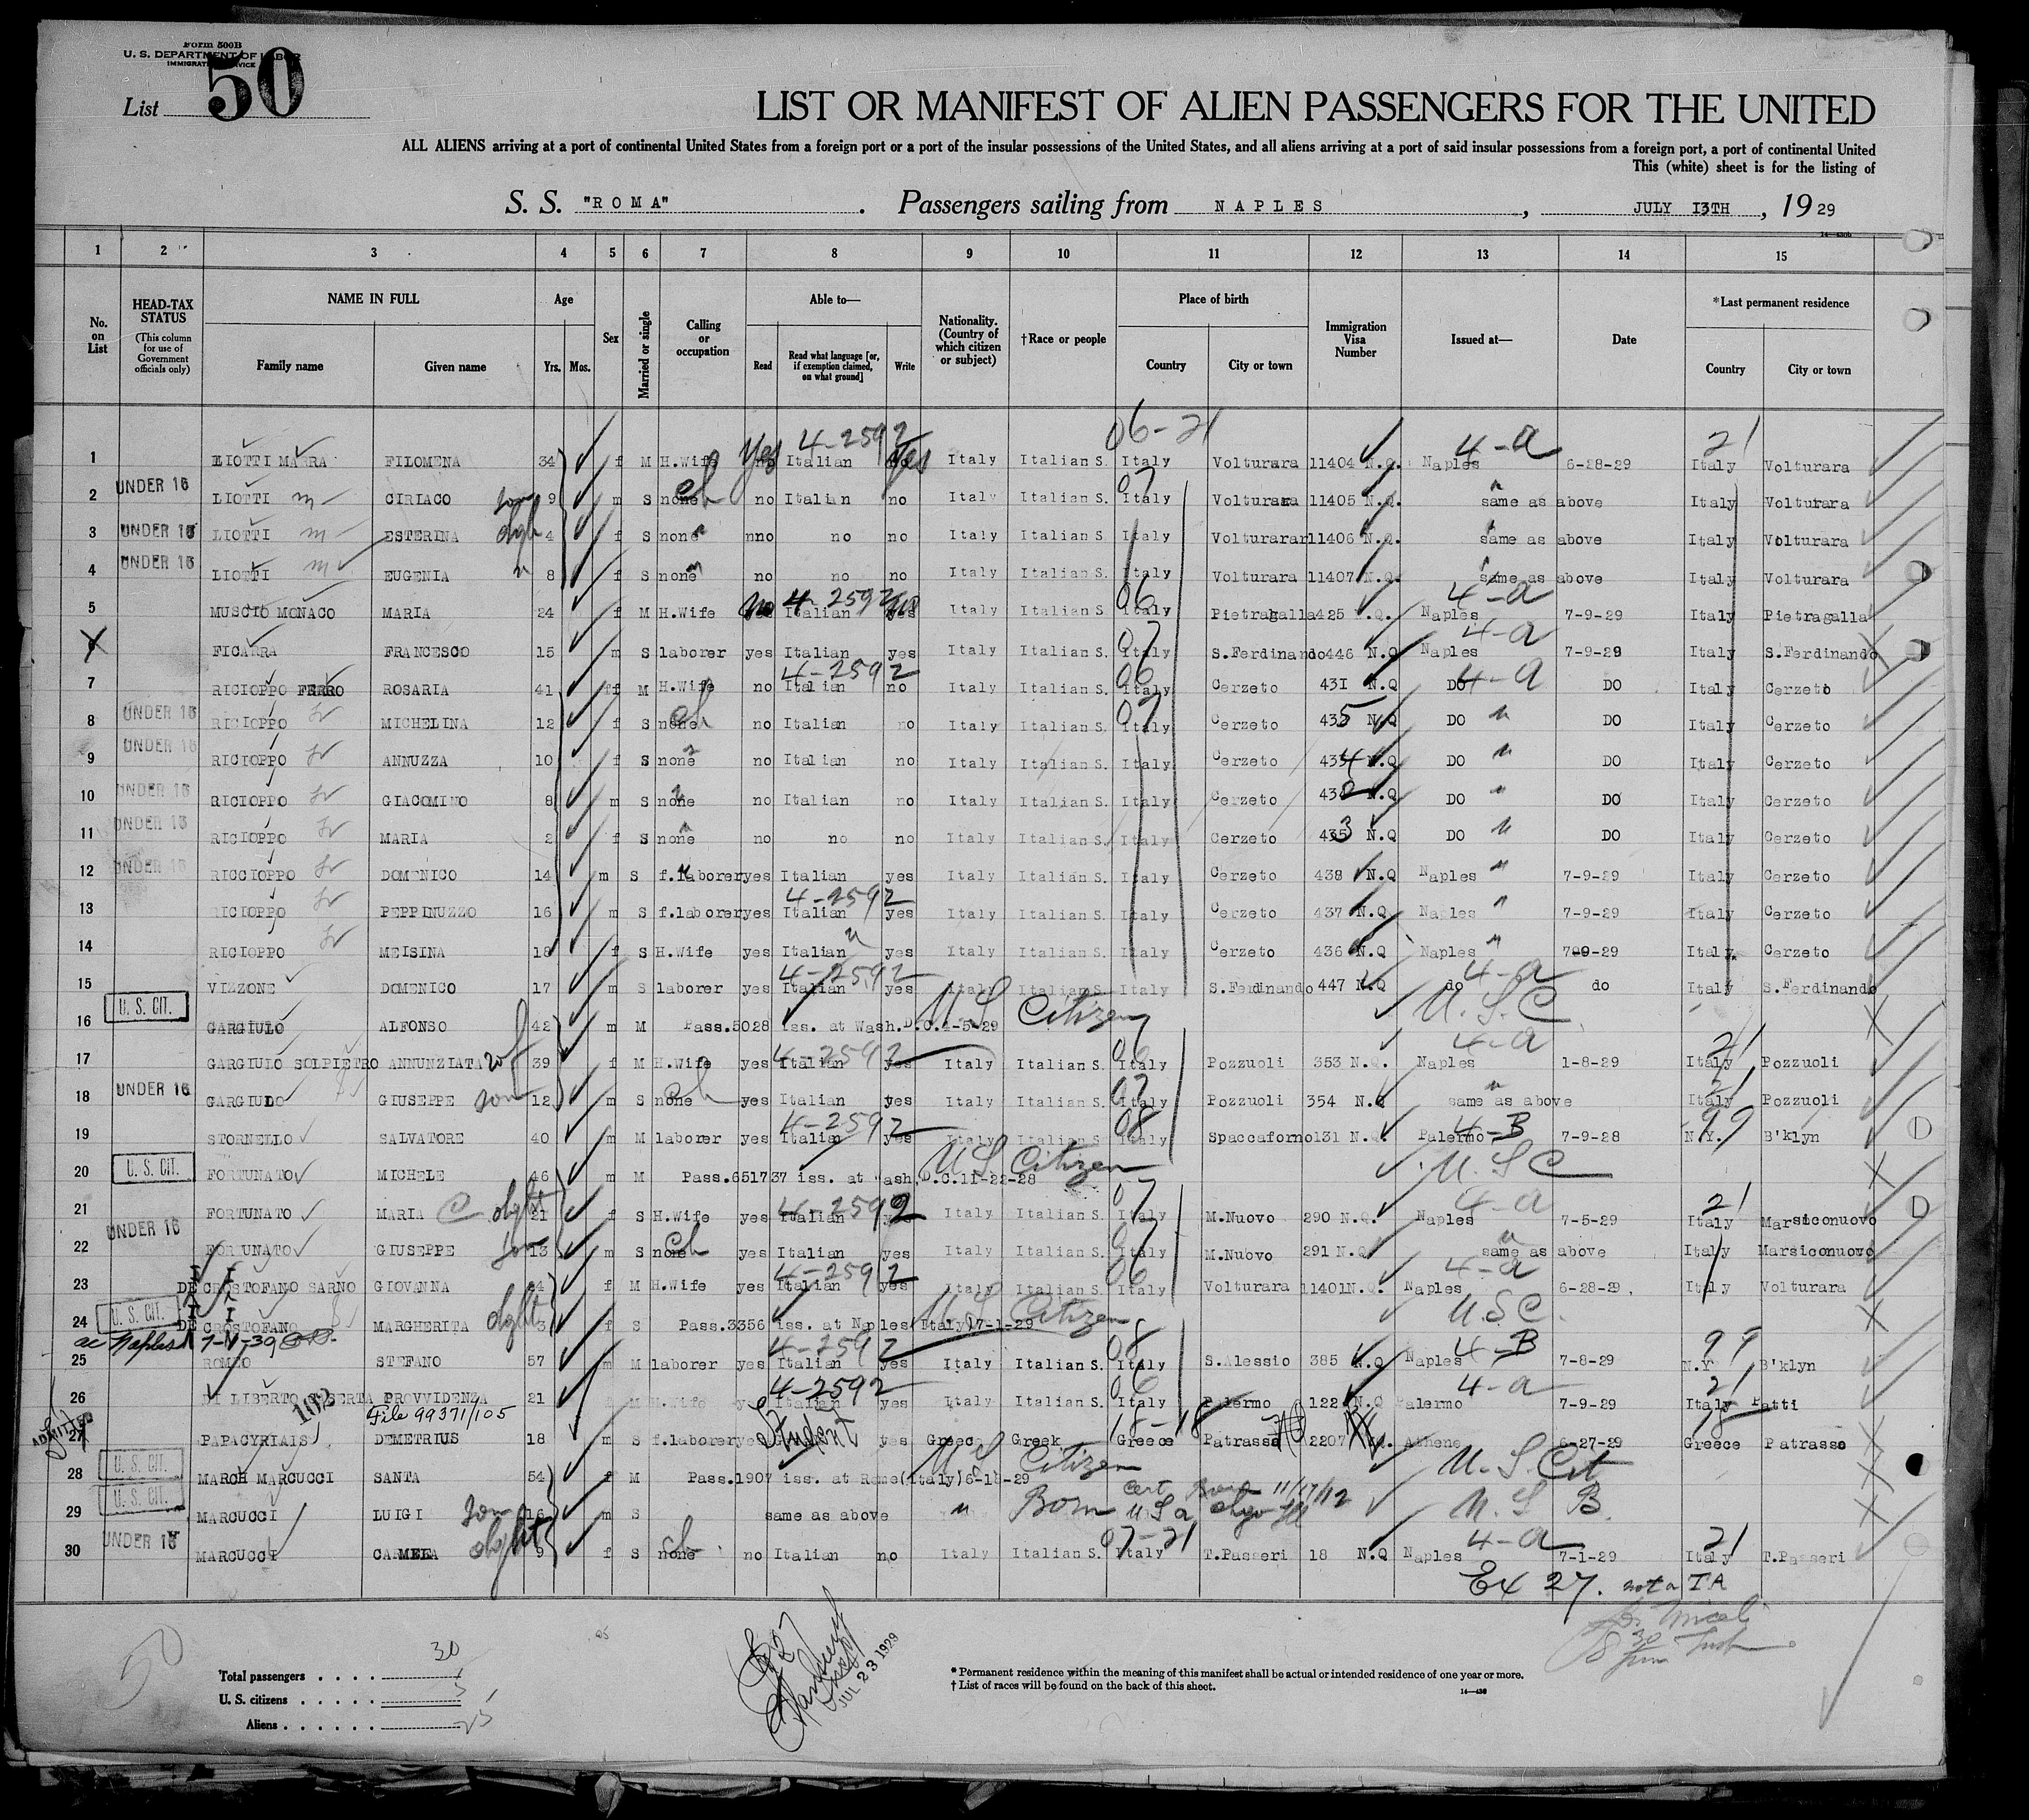 Form 500B
U. S. DEPARTMENT OF LABOR
IMMIGRATION SERVICE
List 50
LIST OR MANIFEST OF ALIEN PASSENGERS FOR THE UNITED
ALL ALIENS arriving at a port of continental United States from a foreign port or a port of the insular possessions of the United States, and all aliens arriving at a port of said insular possessions from a foreign port, a port of continental United
This (white) sheet is for the listing of
S. S. "ROMA". Passengers sailing from NAPLES, JULY 13TH, 1929
14—430b
1 2 3 4 5 6 7 8 9 10 11 12 13 14 15
No. on List
HEAD-TAX STATUS (This column for use of Government officials only)
NAME IN FULL Family name Given name
Age Yrs. Mos.
Sex
Married or single
Calling or occupation
Able to— Read Read what language [or, if exemption claimed, on what ground] Write
Nationality. (Country of which citizen or subject)
†Race or people
Place of birth Country City or town
Immigration Visa Number
Issued at—
Date
*Last permanent residence Country City or town
4-2592 06-21 4-a 21
1 LIOTTI MARRA FILOMENA 34 f M H.Wife Yes Italian Yes Italy Italian S. Italy Volturara 11404 N.Q. Naples 6-28-29 Italy Volturara
2 UNDER 16 LIOTTI m CIRIACO son 9 m S none ch no Italian no Italy Italian S. 07 Italy Volturara 11405 N.Q. same as above Italy Volturara
3 UNDER 16 LIOTTI m ESTERINA dgh 4 f S none nno no no Italy Italian S. Italy Volturarar11406 N.Q. same as above Italy Volturara
4 UNDER 16 LIOTTI m EUGENIA " 8 f S none no no no Italy Italian S. Italy Volturara 11407 N.Q. same as above Italy Volturara
5 MUSCIO MONACO MARIA 24 f M H.Wife No 4-2592 Italian no Italy Italian S. 06 Italy Pietragalla 425 N.Q. Naples 4-a 7-9-29 Italy Pietragalla
6 FICARRA FRANCESCO 15 m S laborer yes Italian yes Italy Italian S. 07 Italy S.Ferdinando 446 N.Q Naples 4-a 7-9-29 Italy S.Ferdinando
7 RICIOPPO FERRO ROSARIA 41 f M H.Wife no 4-2592 Italian no Italy Italian S. 06 Italy Cerzeto 431 N.Q DO 4-a DO Italy Cerzeto
8 UNDER 16 RICIOPPO MICHELINA 12 f S none ch no Italian no Italy Italian S. 07 Italy Cerzeto 435 N.Q DO " DO Italy Cerzeto
9 UNDER 16 RICIOPPO ANNUZZA 10 f S none no Italian no Italy Italian S. Italy Cerzeto 434 N.Q DO " DO Italy Cerzeto
10 UNDER 16 RICIOPPO GIACOMINO 8 m S none no Italian no Italy Italian S. Italy Cerzeto 432 N.Q DO " DO Italy Cerzeto
11 UNDER 16 RICIOPPO MARIA 2 f S none no no no Italy Italian S. Italy Cerzeto 433 N.Q DO " DO Italy Cerzeto
12 UNDER 16 RICCIOPPO DOMENICO 14 m S f.laborer yes Italian yes Italy Italian S. Italy Cerzeto 438 N.Q Naples " 7-9-29 Italy Cerzeto
13 RICIOPPO PEPPINUZZO 16 m S f.laborer yes 4-2592 Italian yes Italy Italian S. Italy Cerzeto 437 N.Q Naples " 7-9-29 Italy Cerzeto
14 RICIOPPO MEISINA 18 f S H.Wife yes Italian " yes Italy Italian S. Italy Cerzeto 436 N.Q Naples " 709-29 Italy Cerzeto
15 VIZZONE DOMENICO 17 m S laborer yes 4-2592 Italian yes Italy Italian S. Italy S.Ferdinando 447 N.Q do 4-a do Italy S.Ferdinando
16 U. S. CIT. GARGIULO ALFONSO 42 m M Pass.5028 iss. at Wash.D.C.4-5-29 U S Citizen U. S. C
17 GARGIULO SOLPIETRO ANNUNZIATA wf 39 f M H.Wife yes 4-2592 Italian yes Italy Italian S. 06 Italy Pozzuoli 353 N.Q. Naples 4-a 1-8-29 21 Italy Pozzuoli
18 UNDER 16 GARGIULO GIUSEPPE son 12 m S none ch yes Italian yes Italy Italian S. 07 Italy Pozzuoli 354 N.Q same as above 21 Italy Pozzuoli
19 STORNELLO SALVATORE 40 m M laborer yes 4-2592 Italian yes Italy Italian S 08 Italy Spaccaforno 131 N.Q. Palermo 4-B 7-9-28 99 N.Y. B'klyn
20 U. S. CIT. FORTUNATO MICHELE 46 m M Pass.651737 iss. at Wash.D.C.11-22-28 U S Citizen U. S C
21 FORTUNATO MARIA C dght 21 f S H.Wife yes 4-2592 Italian yes Italy Italian S. 07 Italy M.Nuovo 290 N.Q. Naples 4-a 7-5-29 21 Italy Marsiconuovo
22 UNDER 16 FORTUNATO GIUSEPPE son 13 m S none ch yes Italian yes Italy Italian S. 07 Italy M.Nuovo 291 N.Q same as above Italy Marsiconuovo
23 DE CRISTOFANO SARNO GIOVANNA 44 f M H.Wife yes 4-2592 Italian yes Italy Italian S. 06 Italy Volturara 11401N.Q. Naples 4-a 6-28-29. Italy Volturara
24 U. S. CIT. DE CRISTOFANO MARGHERITA dght 3 f S Pass.3356 iss. at Naples(Italy)7-1-29 U S Citizen U.S.C.
25 ROMEO STEFANO 57 m M laborer yes 4-2592 Italian yes Italy Italian S. 08 Italy S.Alessio 385 N.Q Naples 4-B 7-8-29 99 N.Y. B'klyn
26 DI LIBERTO CASERTA PROVVIDENZA 21 f M H.Wife yes 4-2592 Italian yes Italy Italian S. 06 Italy Palermo 122 N.Q Palermo 4-a 7-9-29 21 Italy Patti
102 File 99371/105
27 ADMITTED PAPACYRIAIS DEMETRIUS 18 m S f.laborer yes Student yes Greec Greek 18-18 Greece Patrasso 2207 Athene 6-27-29 18 Greece Patrasso
28 U. S. CIT. MARCH MARCUCCI SANTA 54 f M Pass.1907 iss. at Rome(Italy)6-18-29 U S Citizen U. S. Cit
29 U. S. CIT. MARCUCCI LUIGI son 16 m S same as above " Born U S a Cert. 11/17/12 U. S B.
30 UNDER 16 MARCUCCI CARMELA dght 9 f S none ch no Italian no Italy Italian S. 07-21 Italy T.Passeri 18 N.Q Naples 4-a 7-1-29 21 Italy T.Passeri
Ex 27. not a TA
Total passengers . . . . 30
U. S. citizens . . . . . 5
Aliens . . . . . . 25
50
JUL 23 1929
* Permanent residence within the meaning of this manifest shall be actual or intended residence of one year or more.
† List of races will be found on the back of this sheet.
14—430